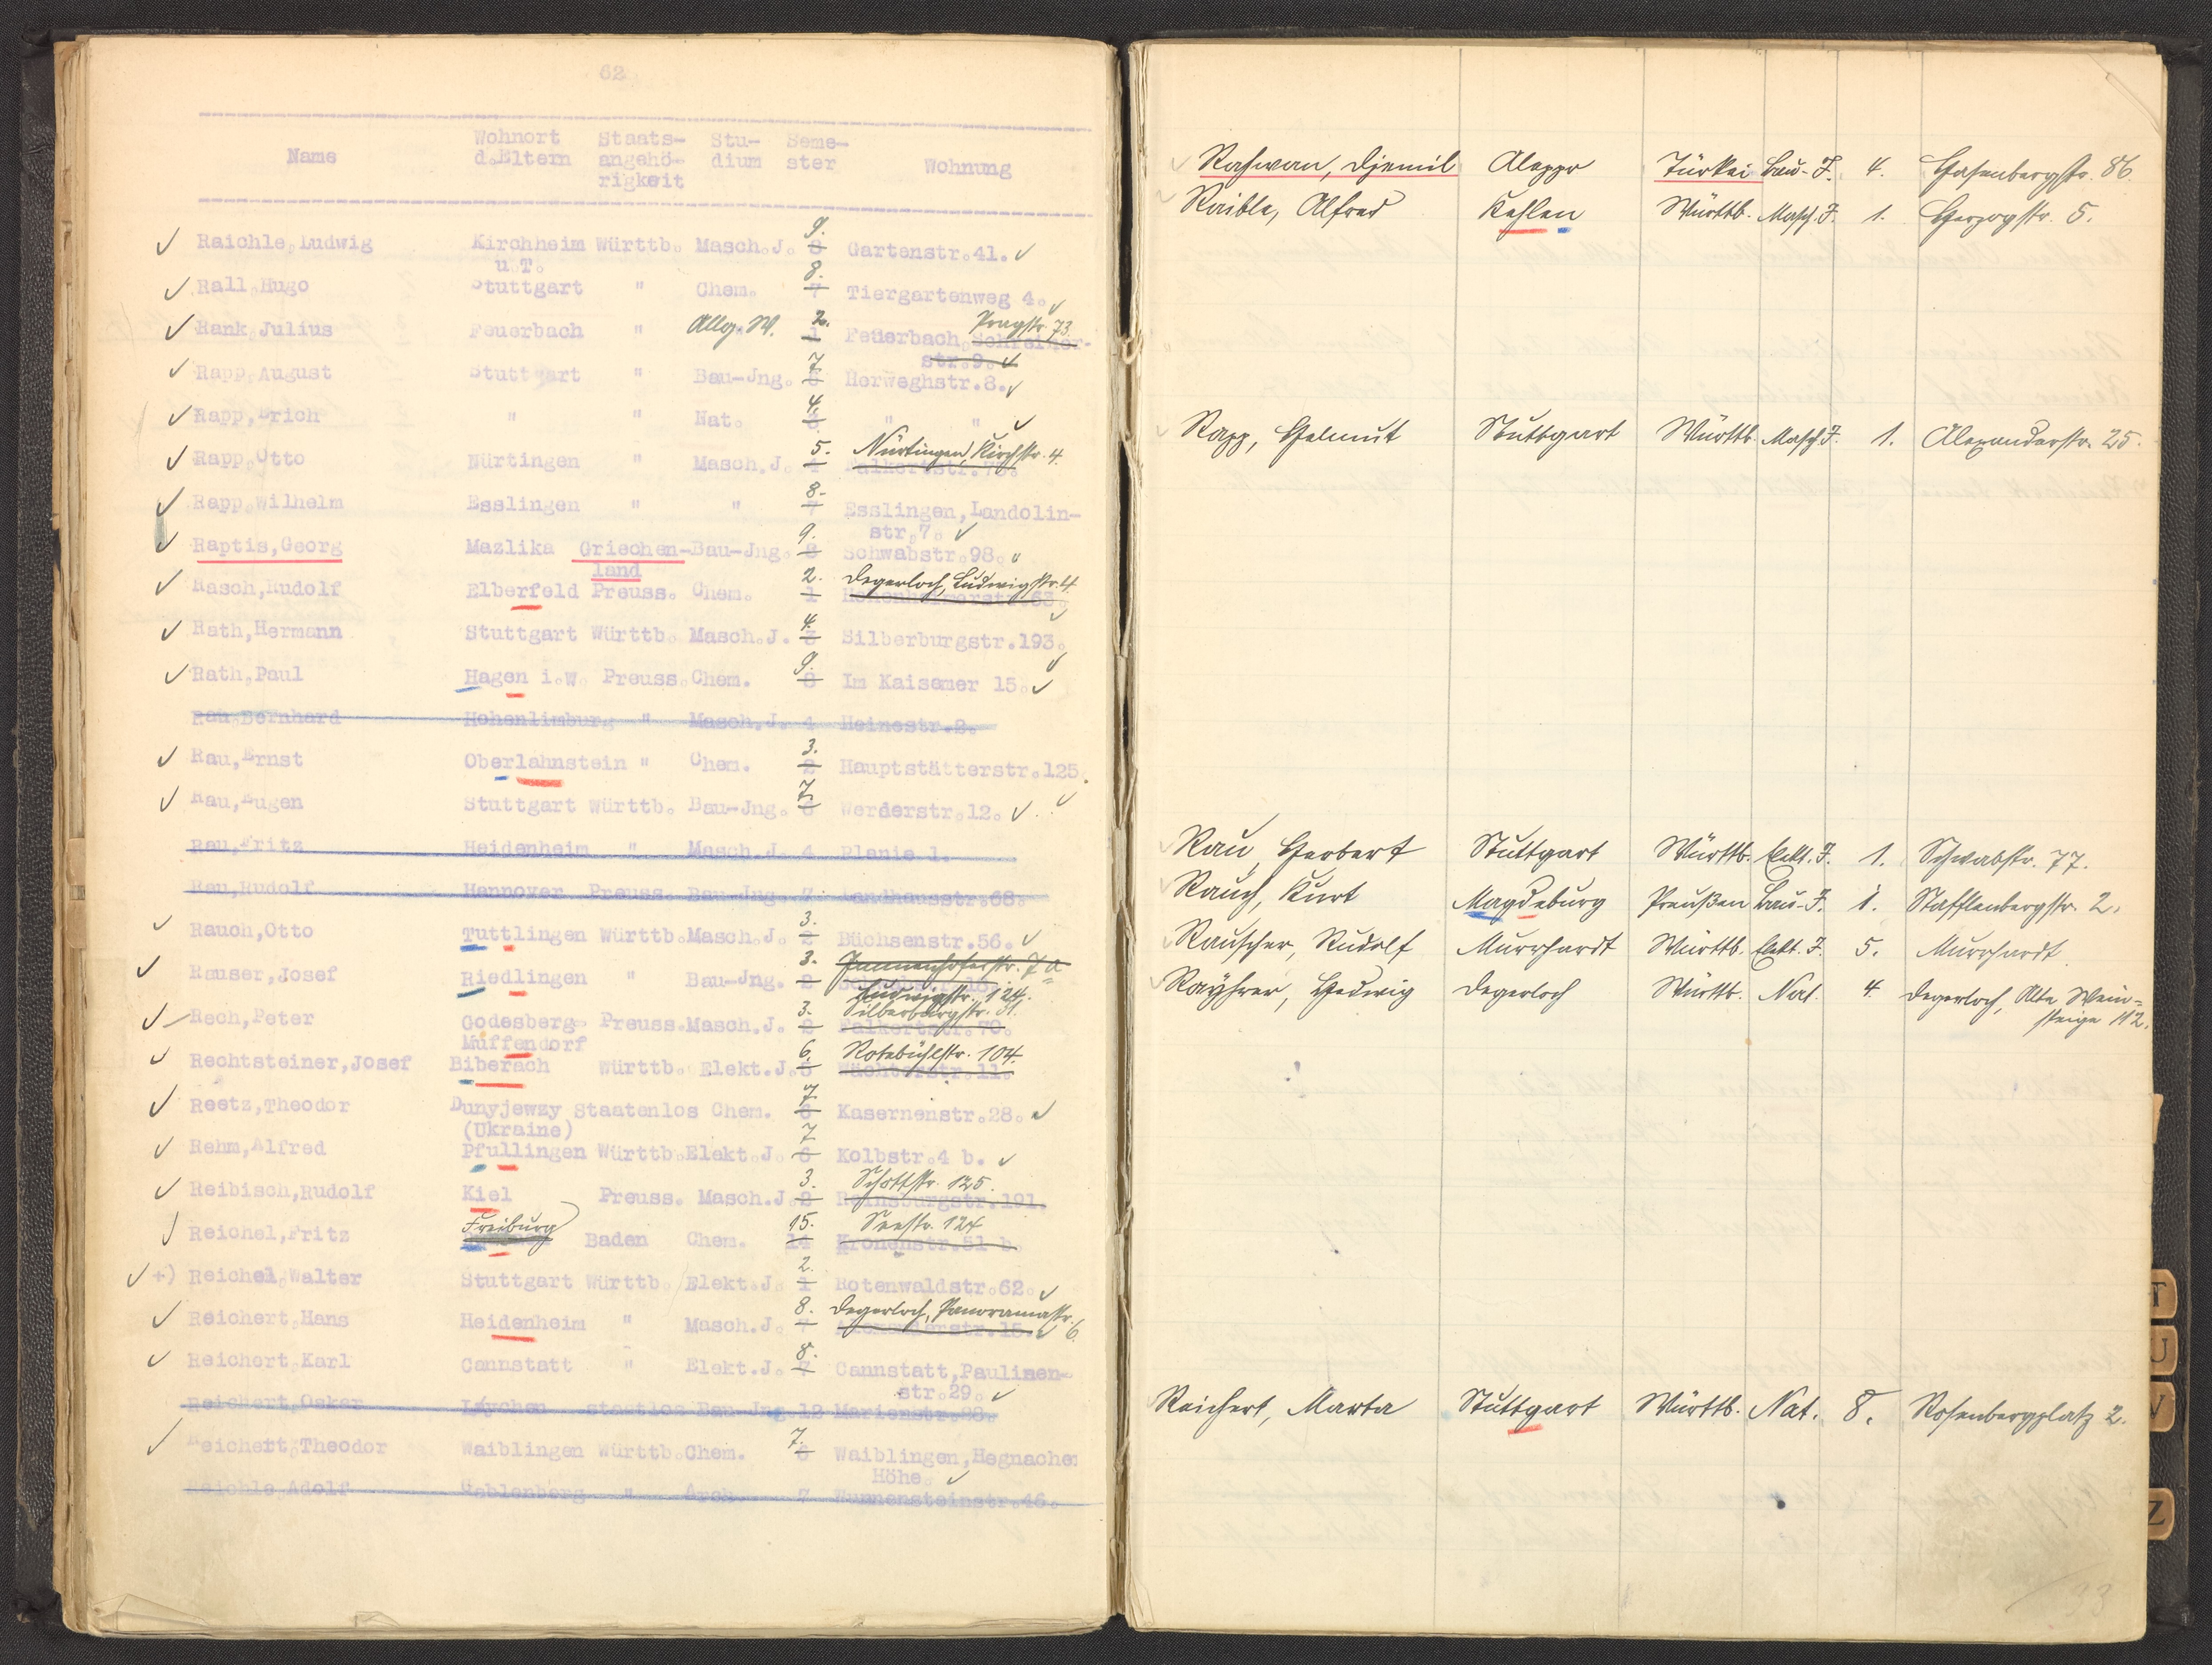 62
Name Wohnort d.Eltern Staats-angehö-rigkeit Stu-dium Seme-ster Wohnung
Raichle, Ludwig Kirchheim u.T. Württb. Masch.J. 8 9. Gartenstr.41.
Rall, Hugo Stuttgart " Chem. 7 8. Tiergartenweg 4.
Rank, Julius Feuerbach " Allg. W. 1 2. Feuerbach, Schreiner-str.9. Pragstr. 73.
Rapp, August Stuttgart " Bau-Jng. 6 7 Herweghstr.8.
Rapp, Erich " " Nat. 3 4. " "
Rapp, Otto Nürtingen " Masch.J. 4 5. Falkertstr.78. Nürtingen, Kirchstr. 4.
Rapp, Wilhelm Esslingen " " 7 8. Esslingen, Landolin-
str.7.
Raptis, Georg Mazlika Griechen-land Bau-Jng. 8 9. Schwabstr.98.
Rasch, Rudolf Elberfeld Preuss. Chem. 1 2. Hohenheimerstr.63. Degerloch, Ludwigstr. 4.
Rath, Hermann Stuttgart Württb. Masch.J. 3 4. Silberburgstr.193.
Rath, Paul Hagen i.W. Preuss. Chem. 8 9. Im Kaisemer 15.
Rau, Bernhard Hohenlimburg " Masch.J. 4 Heinestr.2.
Rau, Ernst Oberlahnstein " Chem. 2 3. Hauptstätterstr.125.
Rau, Eugen Stuttgart Württb. Bau-Jng. 6 7. Werderstr.12.
Rau, Fritz Heidenheim " Masch.J. 4 Planie 1.
Rau, Rudolf Hannover Preuss. Bau-Jng. 7. Landhausstr.68.
Rauch, Otto Tuttlingen Württb. Masch.J. 2 3. Büchsenstr.56.
Rauser, Josef Riedlingen " Bau-Jng. 2 3. Ludwigstr. 124.
Rech, Peter Godesberg-Muffendorf Preuss. Masch.J. 2 3. Falkertstr.70. Silberburgstr. 31.
Rechtsteiner, Josef Biberach Württb. Elekt.J. 5 6. Wächterstr.11. Rotebühlstr. 104.
Reetz, Theodor Dunyjewzy (Ukraine) Staatenlos Chem. 6 7 Kasernenstr.28.
Rehm, Alfred Pfullingen Württb. Elekt.J. 6 7 Kolbstr.4 b.
Reibisch, Rudolf Kiel Preuss. Masch.J. 2 3. Reinsburgstr.191. Schottstr. 125.
Reichel, Fritz Freiburg Baden Chem. 14 15. Kronenstr.51 b. Seestr. 124
+) Reichel, Walter Stuttgart Württb. Elekt.J. 1 2. Rotenwaldstr.62.
Reichert, Hans Heidenheim " Masch.J. 7 8. Alexanderstr.15. Degerloch, Panoramastr. 6.
Reichert, Karl Cannstatt " Elekt.J. 7 8. Cannstatt, Paulinen-
str.29.
Reichert, Oskar Láychen staatlos Bau-Jng. 12 Marienstr.28.
Reichert, Theodor Waiblingen Württb. Chem. 6 7. Waiblingen, Hegnacher
Höhe.
Reichle, Adolf Gablenberg " Arch. 7 Wunnensteinstr.46.
Raswan, Djemil Aleppo Türkei Bau-J. 4. Hasenbergstr. 86.
Raible, Alfred Kehlen Württb. Masch.J. 1. Herzogstr. 5.
Rapp, Helmut Stuttgart Württb. Masch.J. 1. Alexanderstr. 25.
Rau, Herbert Stuttgart Württb. Elekt. J. 1. Schwabstr. 77.
Rauch, Kurt Magdeburg Preußen Bau-J. 1. Stafflenbergstr. 2.
Rauscher, Rudolf Murrhardt Württb. Elekt. J. 5. Murrhardt.
Rayhrer, Hedwig Degerloch Württb. Nat. 4. Degerloch, Alte Wein=
steige 112.
Reichert, Marta Stuttgart Württb. Nat. 8. Rosenbergplatz 2.
33
T
U
Z